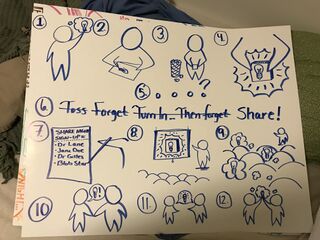 1 2 3 4
5 . . . . ?
6 Toss Forget Turn In... Then forget Share!
7 8 9
SHARE
SIGN-UP
- Dr Lane
- Jane Doe
- Dr Gates
10 11 12